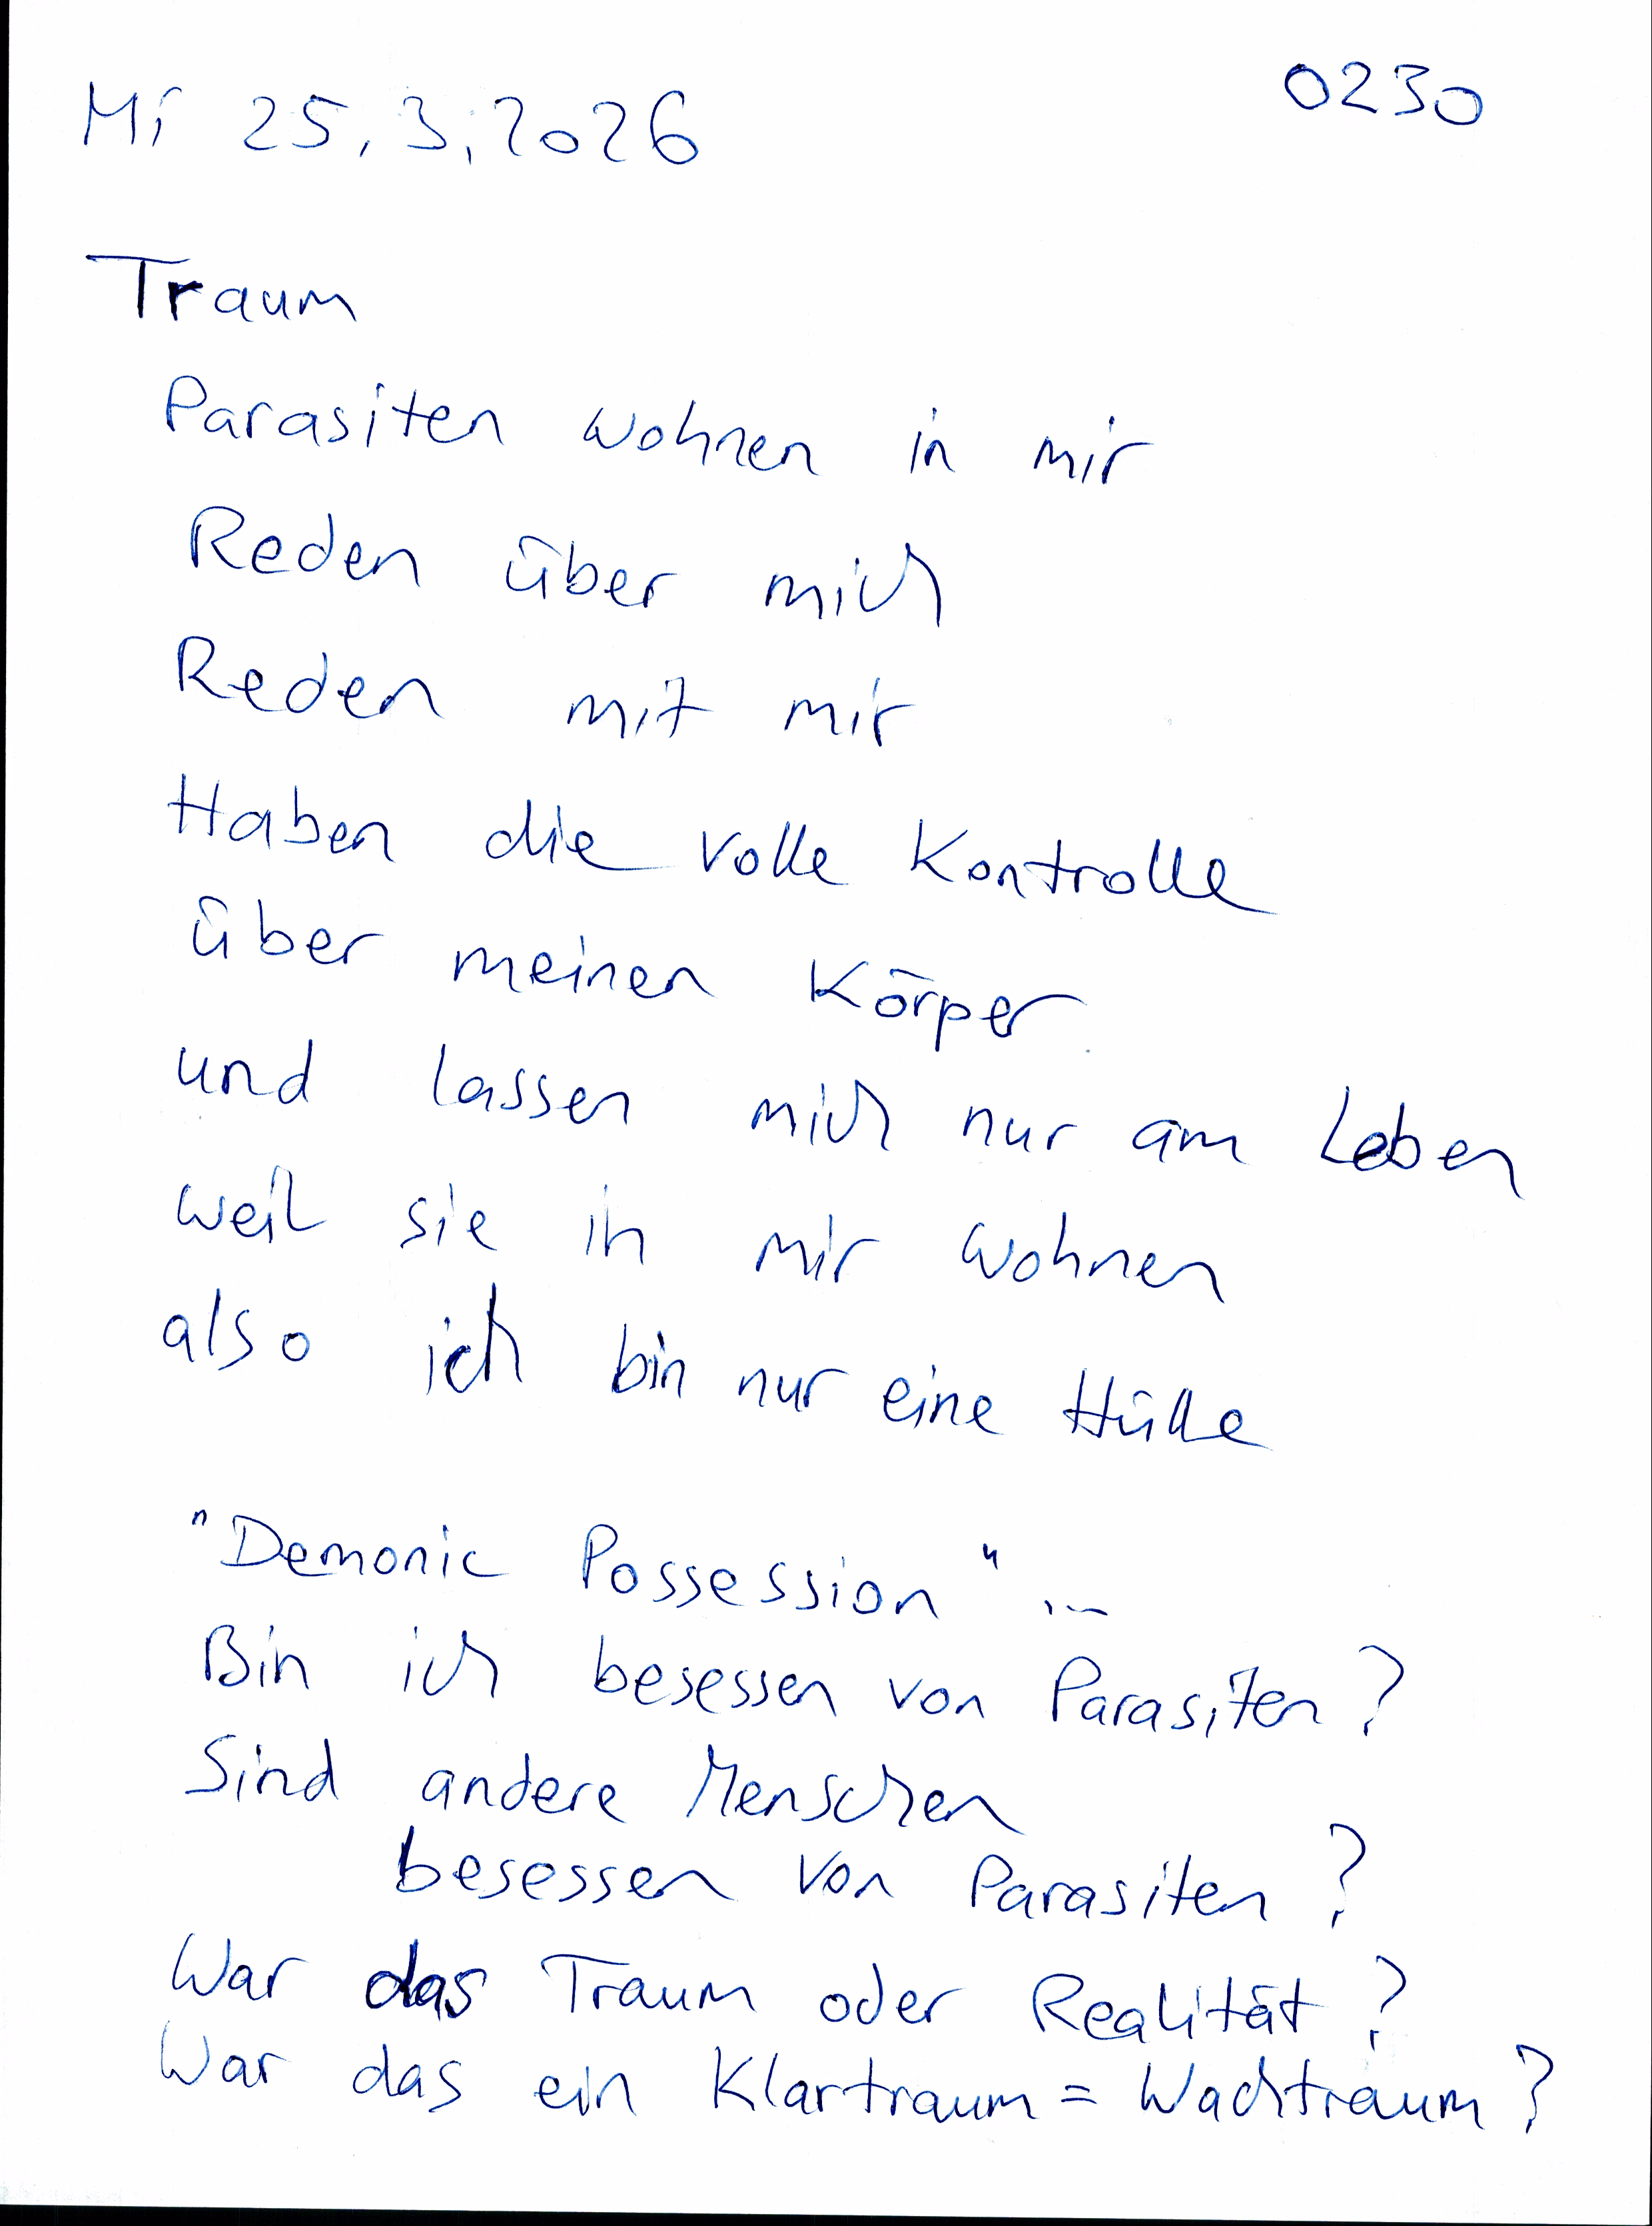 Mi 25.3.2026 0230
Traum
Parasiten wohnen in mir
Reden über mich
Reden mit mir
Haben die volle Kontrolle
über meinen Körper
und lassen mich nur am Leben
weil sie in mir wohnen
also ich bin nur eine Hülle
"Demonic Possession" ...
Bin ich besessen von Parasiten?
Sind andere Menschen
besessen von Parasiten?
War das Traum oder Realität?
War das ein Klartraum = Wachtraum?